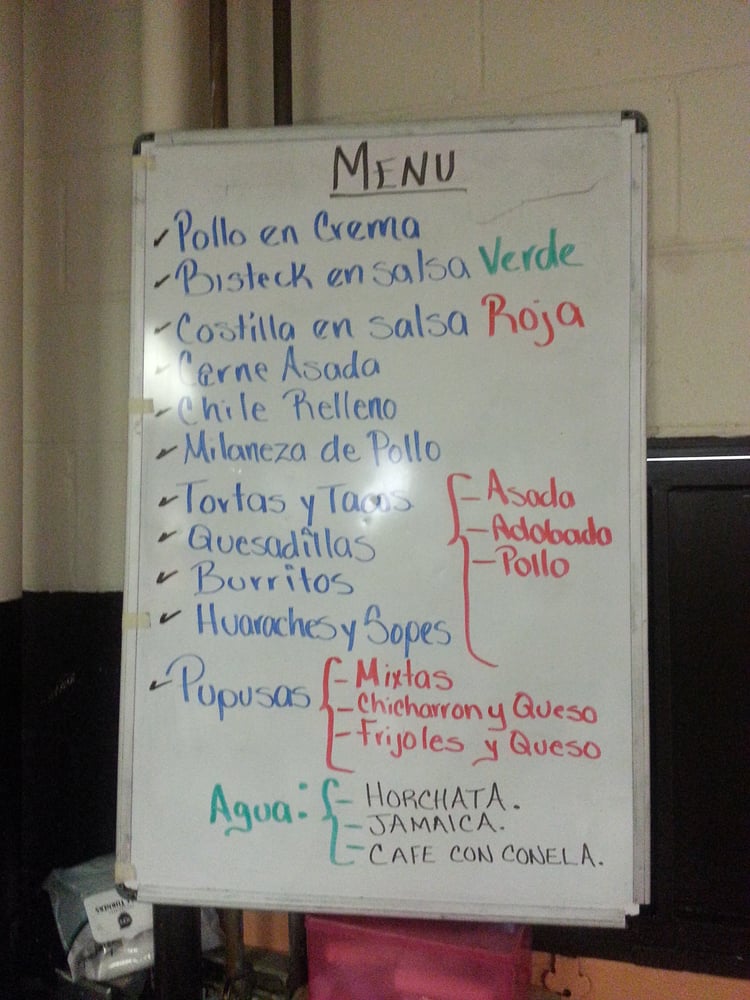 MENU
Pollo en Crema
Bisteck en salsa Verde
Costilla en salsa Roja
Carne Asada
Chile Relleno
Milaneza de Pollo
Tortas y Tacos
- Asada
- Adobado
- Pollo
Quesadillas
Burritos
Huaraches y Sopes
Pupusas
- Mixtas
- Chicharron y Queso
- Frijoles y Queso
Agua:
- HORCHATA.
- JAMAICA.
- CAFE CON CONELA.